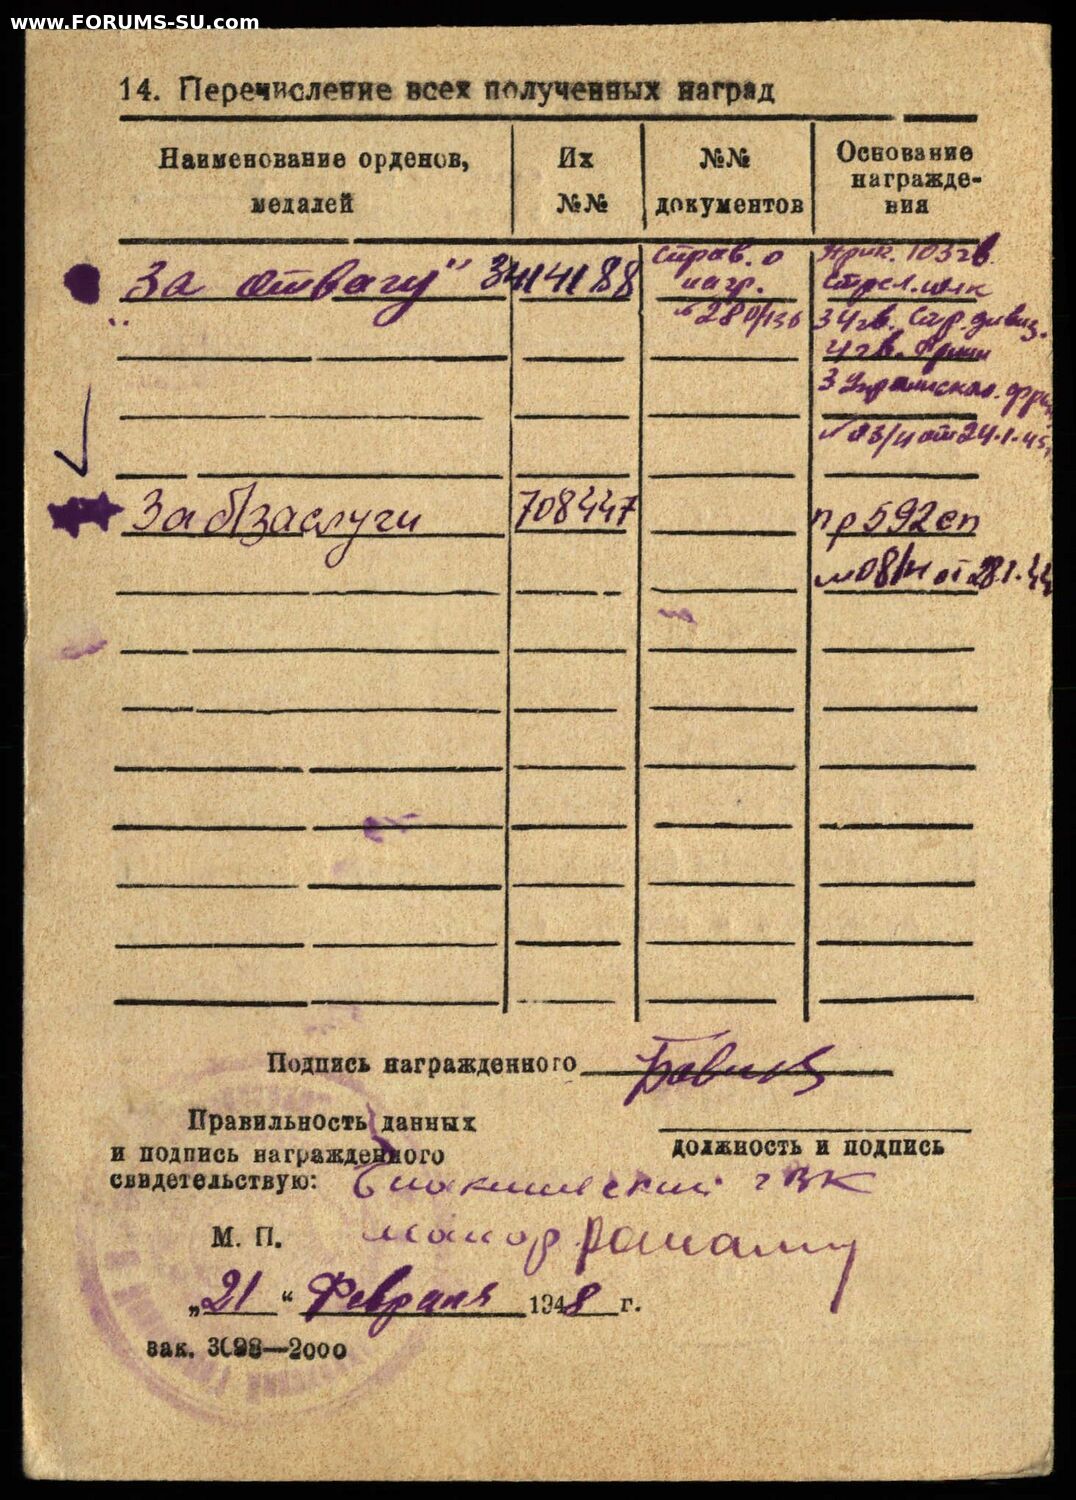 www.FORUMS-SU.com
14. Перечисление всех полученных наград
Наименование орденов, медалей
Их №№
№№ документов
Основание награжде-
ния
„За отвагу" 3414188
Справ. о
нагр.
№ 280/136
Прик. 103 гв.
Стрел. полк
34 гв. стр. дивиз.
4 гв. Армии
3 Украинског. фр
№ 03/н от 24.1.45
За б/заслуги 708447
пр 592 сп
№ 08/н от 28.1.44
Подпись награжденного
Правильность данных
и подпись награжденного
свидетельствую:
должность и подпись
ГВК
М. П.
майор
„21" Февраля 1948 г.
зак. 3098—2000